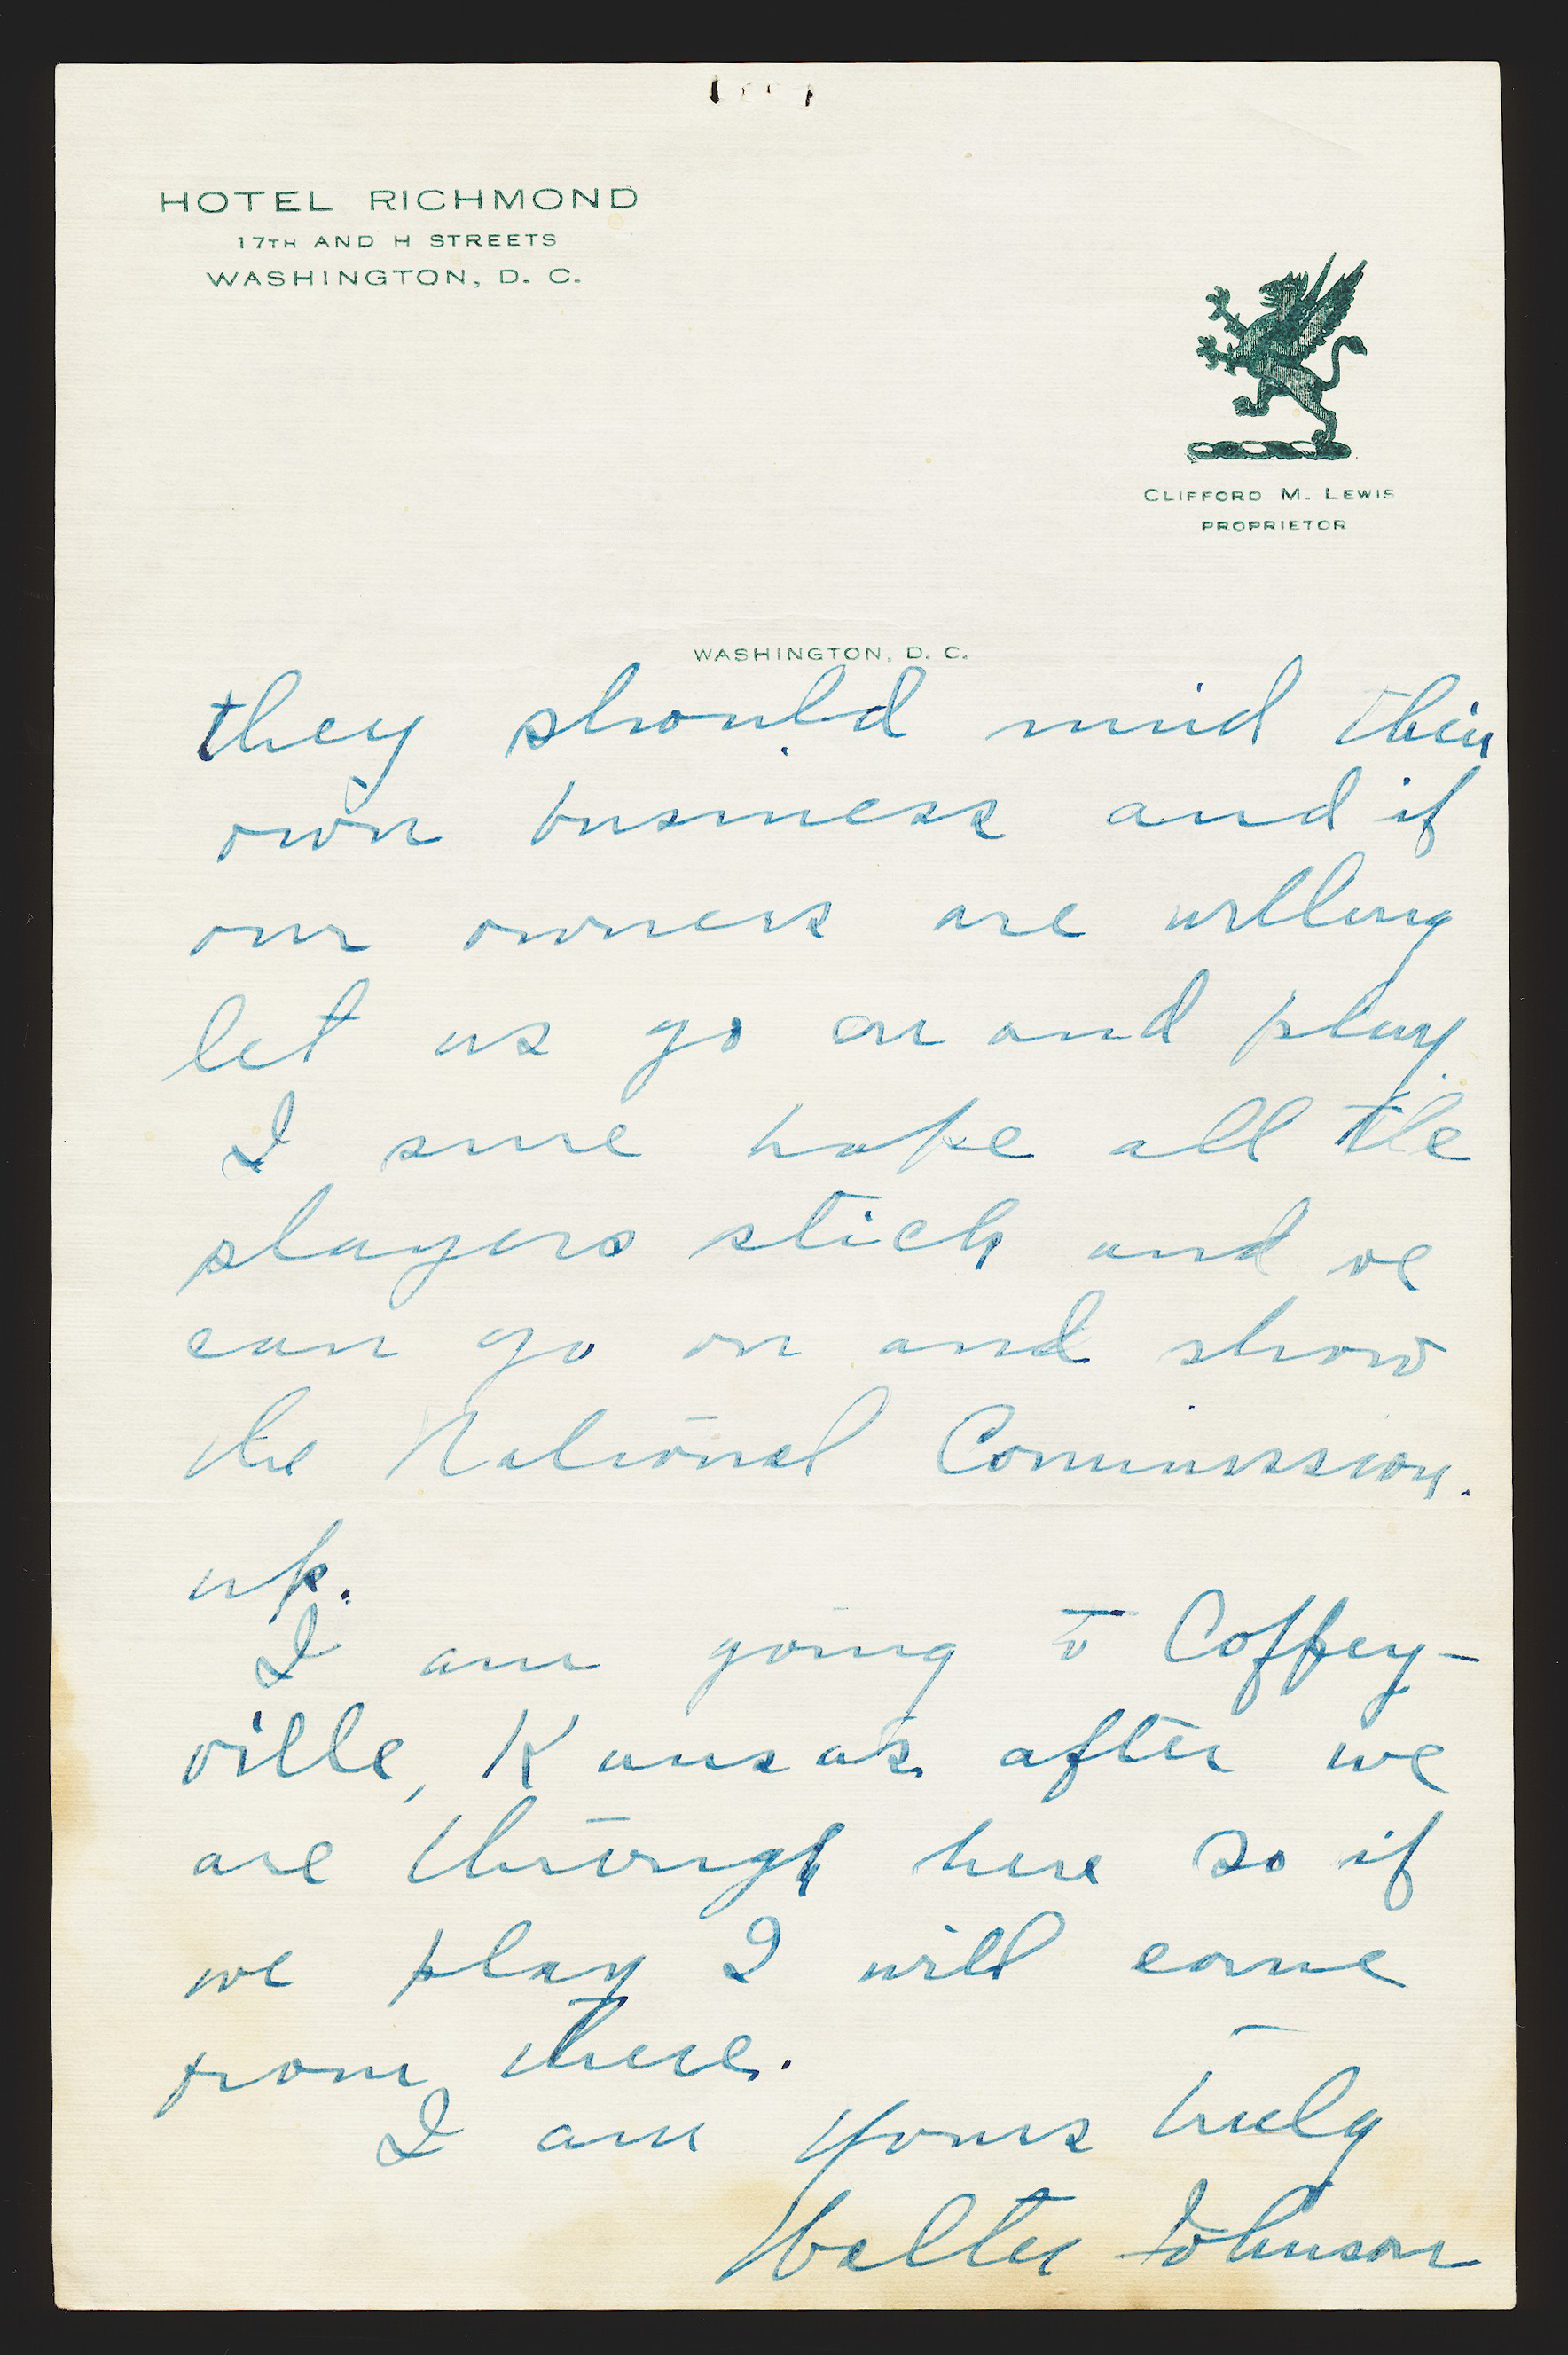 HOTEL RICHMOND
17TH AND H STREETS
WASHINGTON, D. C.
CLIFFORD M. LEWIS
PROPRIETOR
WASHINGTON, D. C.
they should mind their
own business and if
our owners are willing
let us go on and play
I sure hope all the
players stick and we
can go on and show
the National Commission.
up.
I am going to Coffey-
ville, Kansas after we
are through here so if
we play I will come
from there.
I am yours truly
Walter Johnson